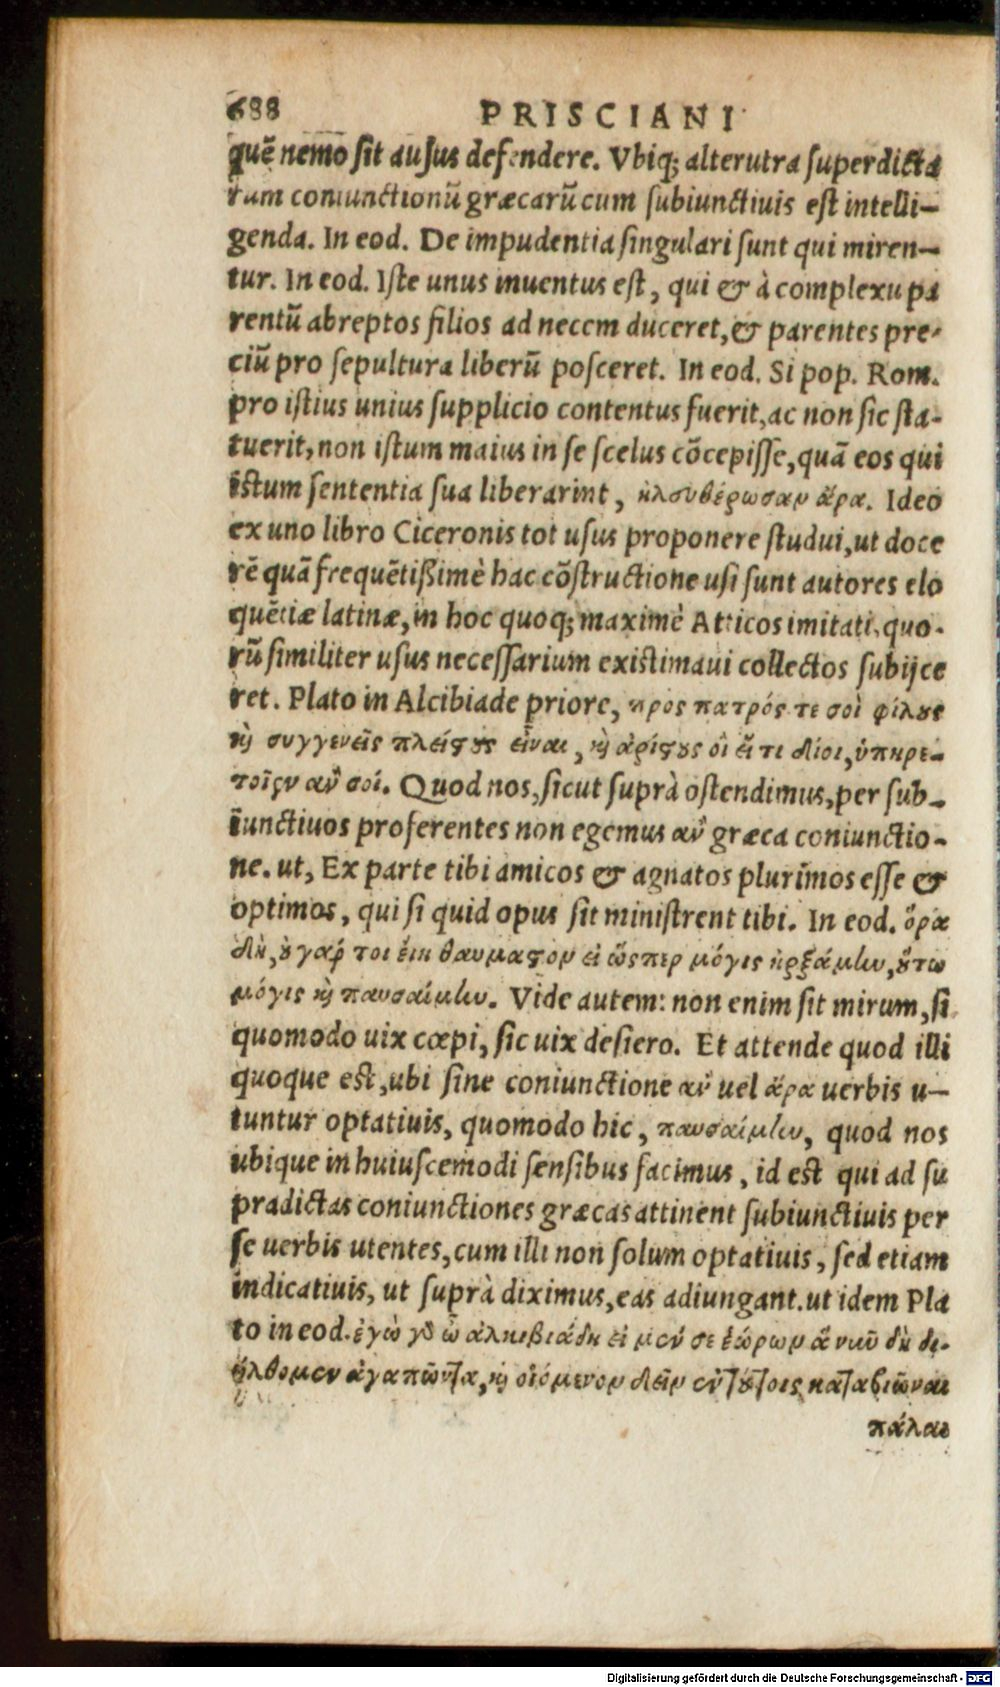 688 PRISCIANI
quē nemo sit ausus defendere. Vbiq; alterutra superdicta
rum coniunctionū græcarū cum subiunctiuis est intelli-
genda. In eod. De impudentia singulari sunt qui miren-
tur. In eod. Iste unus inuentus est, qui & à complexu pa
rentū abreptos filios ad necem duceret, & parentes pre-
ciū pro sepultura liberū posceret. In eod. Si pop. Rom.
pro istius unius supplicio contentus fuerit, ac non sic sta-
tuerit, non istum maius in se scelus cōcepisse, quā eos qui
istum sententia sua liberarint, ἠλευθέρωσαν ἄρα. Ideo
ex uno libro Ciceronis tot usus proponere studui, ut doce
rē quā frequētißimè hac cōstructione usi sunt autores elo
quētiæ latinæ, in hoc quoq; maximè Atticos imitati, quo-
rū similiter usus necessarium existimaui collectos subijce
ret. Plato in Alcibiade priore, προς πατρός τε σοὶ φίλους
καὶ συγγενεῖς πλείστους εἶναι, καὶ ἀρίστους οἳ εἴ τι δέοι, ὑπηρε-
τοῖεν ἄν σοί. Quod nos, sicut suprà ostendimus, per sub-
iunctiuos proferentes non egemus ἂν græca coniunctio-
ne. ut, Ex parte tibi amicos & agnatos plurimos esse &
optimos, qui si quid opus sit ministrent tibi. In eod. ὅρα
δὴ, οὐ γάρ τοι εἴη θαυμαστον εἰ ὥσπερ μόγις ἠρξάμην, οὕτω
μόγις καὶ παυσαίμην. Vide autem: non enim sit mirum, si
quomodo uix cœpi, sic uix desiero. Et attende quod illi
quoque est, ubi sine coniunctione ἂν uel ἄρα uerbis u-
tuntur optatiuis, quomodo hic, παυσαίμην, quod nos
ubique in huiuscemodi sensibus facimus, id est qui ad su
pradictas coniunctiones græcas attinent subiunctiuis per
se uerbis utentes, cum illi non solum optatiuis, sed etiam
indicatiuis, ut suprà diximus, eas adiungant. ut idem Pla
to in eod. ἐγὼ γὸ ὦ ἀλκιβιάδη εἰ μέν σε ἑώρων ἃ νυῦ δὴ δι-
ήλθομεν ἀγαπῶντα, καὶ οἰόμενον δεῖν ἐν τούτοις καταβιῶναι
πάλαι
Digitalisierung gefördert durch die Deutsche Forschungsgemeinschaft - DFG